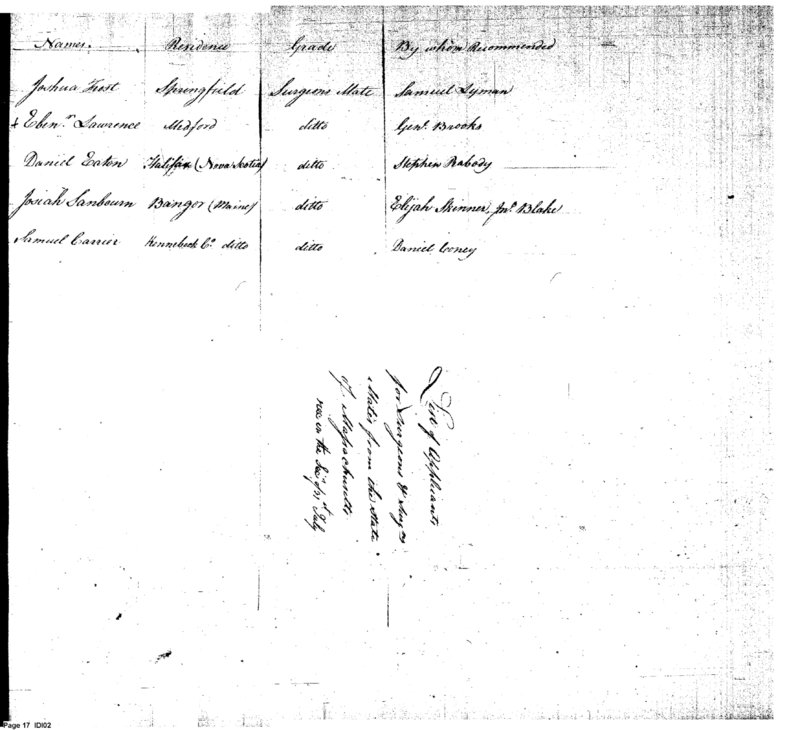 Names. Residence Grade By whom Recommended
Joshua Frost Springfield Surgeons Mate Samuel Lyman
‡ Eben.r Lawrence Medford ditto Genl. Brooks
Daniel Eaton Halifax (Nova Scotia) ditto Stephen Peabody
Josiah Sanbourn Bangor (Maine) ditto Elijah Skinner, Jno. Blake
Samuel Carrier Kennebeck Co. ditto ditto Daniel Coney
List of Applicants
for Surgeons & Surgns
Mates from the State
of Massachusetts
rec in the July
Page 17 IDI02